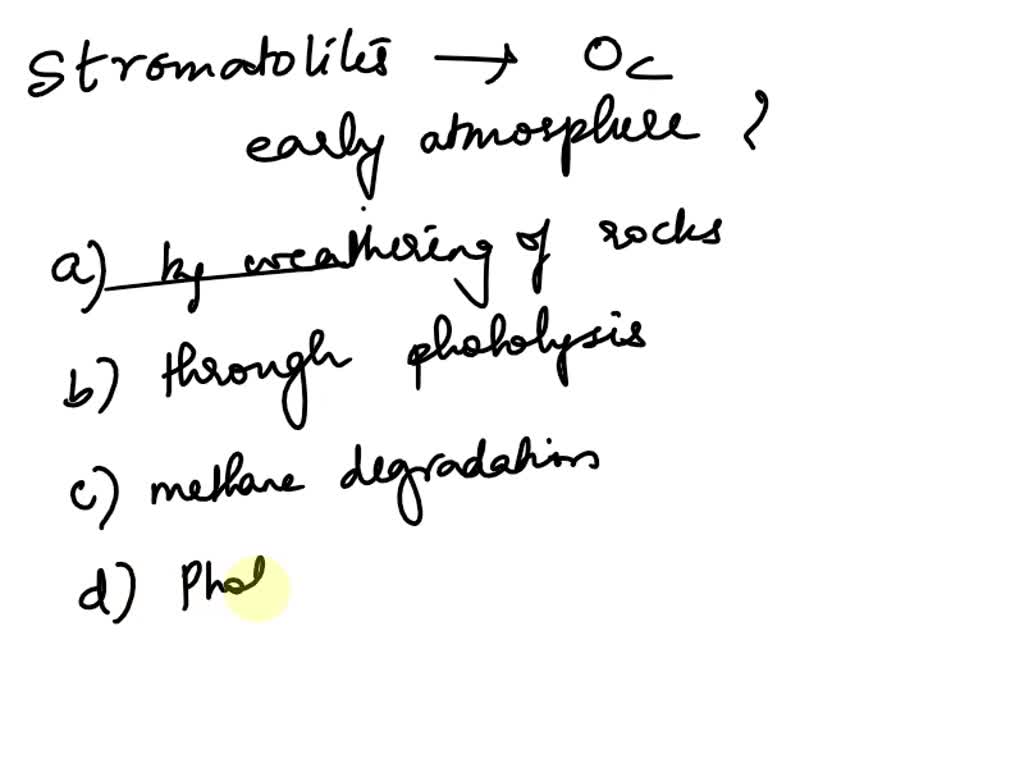 Stromatolites → O2
early atmosphere ?
a) by weathering of rocks
b) through photolysis
c) methane degradation
d) Phot